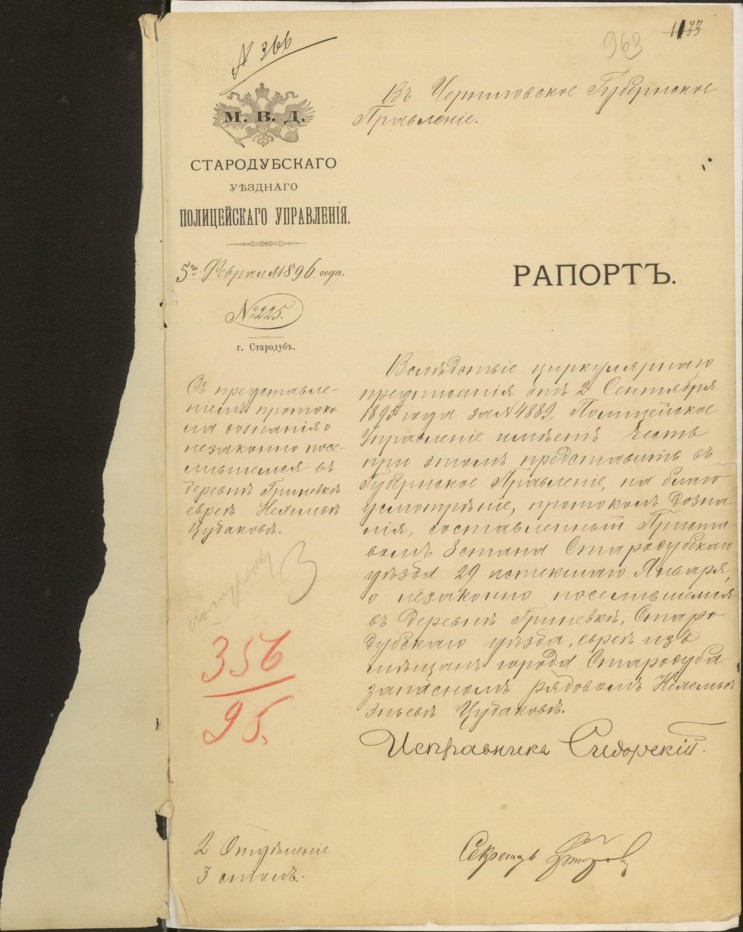 № 366
963
М. В. Д.
СТАРОДУБСКАГО
УѢЗДНАГО
ПОЛИЦЕЙСКАГО УПРАВЛЕНІЯ.
5го Февраля 1896 года.
№ 225.
г. Стародубъ.
Въ Черниговское Губернское
Правленіе.
РАПОРТЪ.
Съ представле-
ніемъ протоко
ла дознанія о
незаконно посе-
лившемся въ
деревнѣ Гриневкѣ
еврей Нехемьѣ
Цубаковѣ.
356
95.
Вслѣдствіе циркулярнаго
предписанія отъ 2 Сентября
1895 года за № 4889, Полицейское
Управленіе имѣетъ честь
при этомъ представить въ
Губернское Правленіе, на благо
усмотрѣніе, протоколъ дозна
нія, составленный Приста
вомъ 3 стана Стародубскаго
уѣзда 29 истекшаго Января,
о незаконно поселившемся
въ деревнѣ Гриневкѣ, Старо
дубскаго уѣзда, еврей изъ
мѣщанъ города Стародуба
запасномъ рядовомъ Нехемьѣ
Цубаковѣ.
Исправникъ Сидорскій.
Секретарь
2 Отдѣленіе
3 столъ.